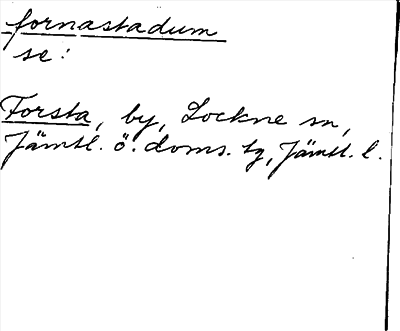 fornastadum
se:
Forsta, by, Lockne sn,
Jämtl. ö. doms. tg, Jämtl. l.